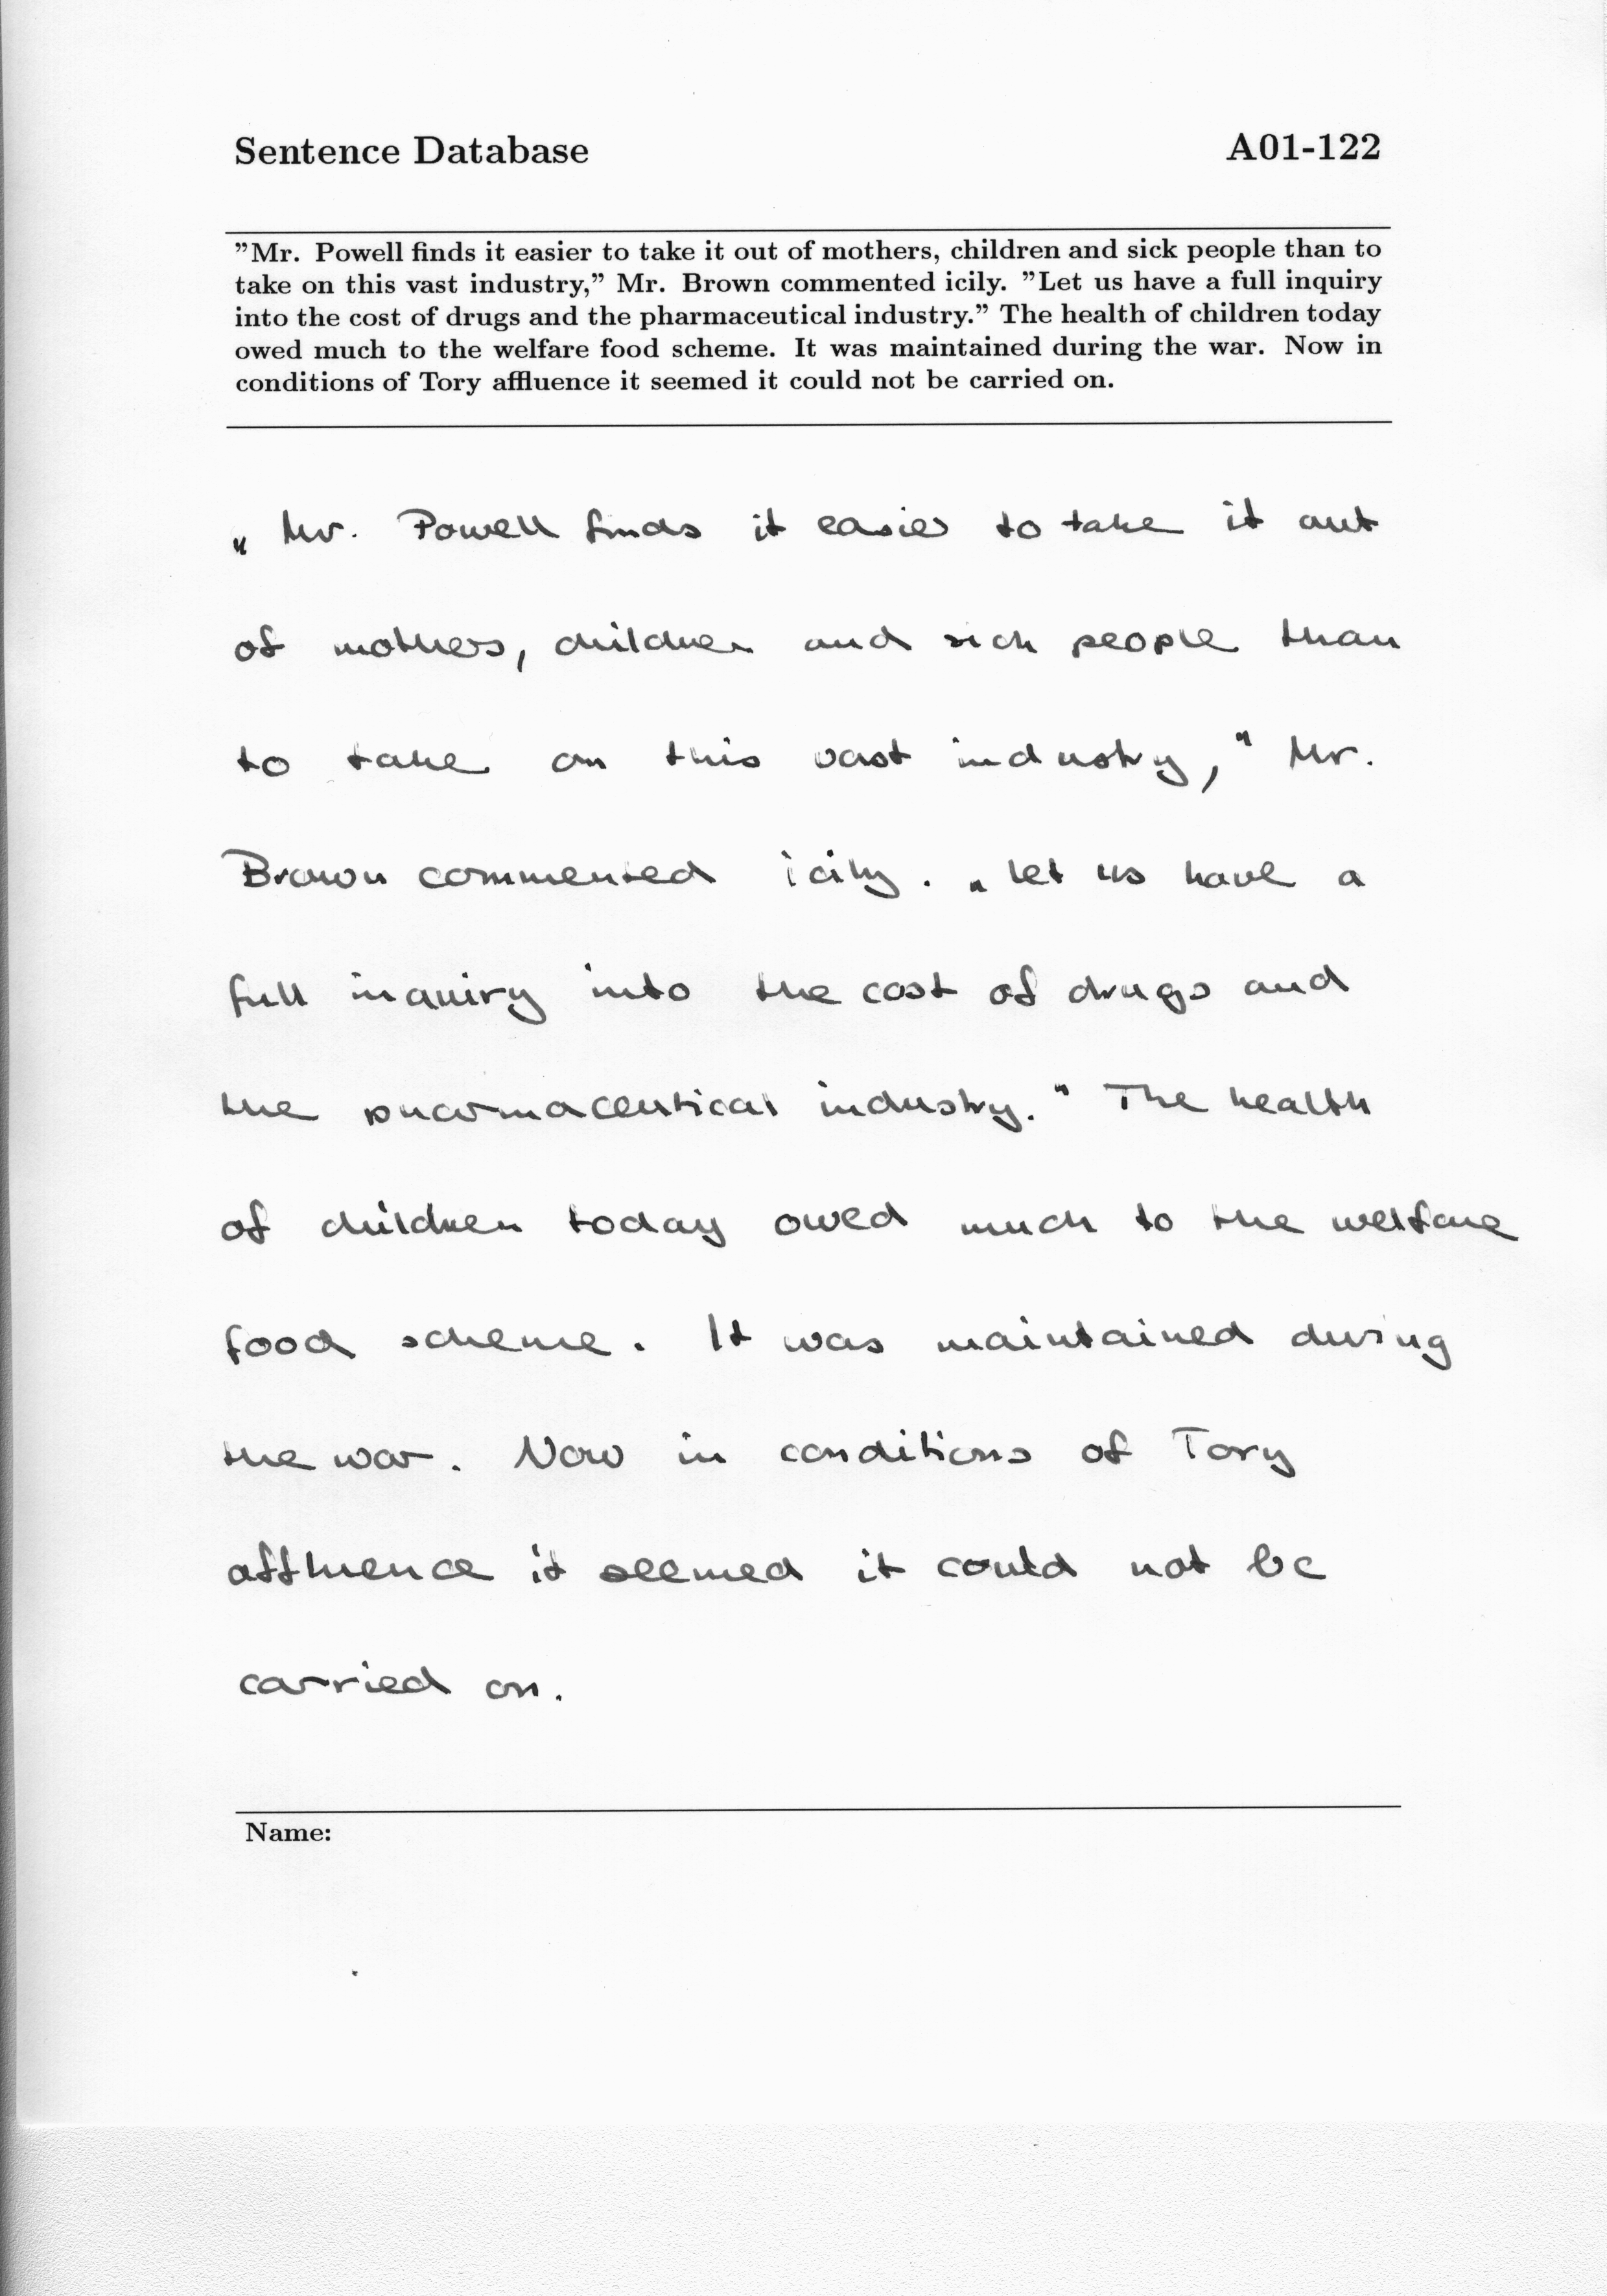 Sentence Database A01-122
”Mr. Powell finds it easier to take it out of mothers, children and sick people than to
take on this vast industry,” Mr. Brown commented icily. ”Let us have a full inquiry
into the cost of drugs and the pharmaceutical industry.” The health of children today
owed much to the welfare food scheme. It was maintained during the war. Now in
conditions of Tory affluence it seemed it could not be carried on.
„Mr. Powell finds it easier to take it out
of mothers, children and sick people than
to take on this vast industry,“ Mr.
Brown commented icily. „Let us have a
full inquiry into the cost of drugs and
the pharmaceutical industry.“ The health
of children today owed much to the welfare
food scheme. It was maintained during
the war. Now in conditions of Tory
affluence it seemed it could not be
carried on.
Name: